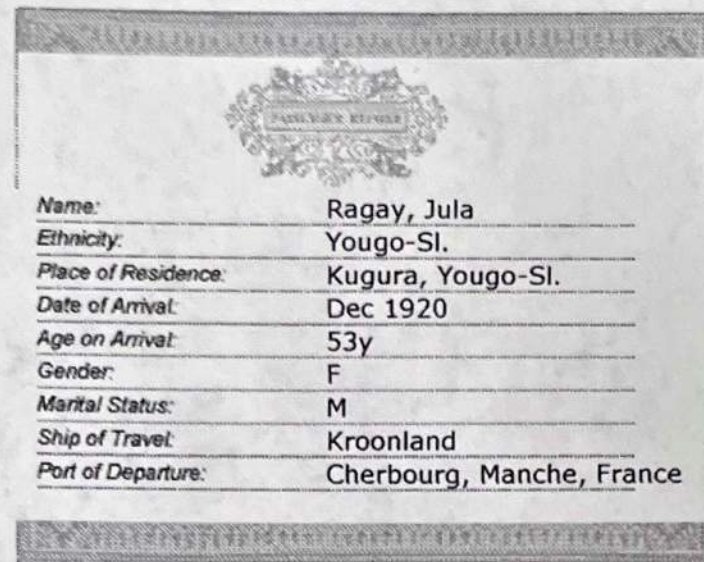 PASSENGER RECORD
Name: Ragay, Jula
Ethnicity: Yougo-Sl.
Place of Residence: Kugura, Yougo-Sl.
Date of Arrival: Dec 1920
Age on Arrival: 53y
Gender: F
Marital Status: M
Ship of Travel: Kroonland
Port of Departure: Cherbourg, Manche, France